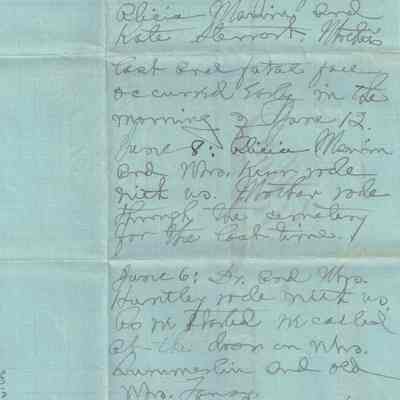 Alicia Manning and
Kate Stewart. Mother's
last and fatal fall
occurred Early in the
morning of June 12
June 8: Alicia Mannin
and Mrs. Kerr rode
with us. Mother rode
through the cemetery
for the last time.
June 6: Dr. and Mrs.
Huntley rode with us,
As we started we called
at the door on Mrs.
Summerlin and old
Mrs.